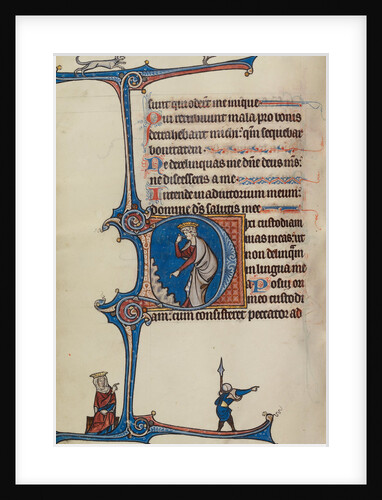 sunt qui oderunt me inique
Qui retribuunt mala pro bonis
detrahebant michi: qm sequebar
bonitatem.
Ne derelinquas me dne deus ms:
ne discesseris a me
Intende in adiutorium meum:
Domine ds salutis mee
Dixi custodiam
uias meas: ut
non delinqua
in lingua mea
Posui ori
meo custodi
am: cum consisteret peccator ad